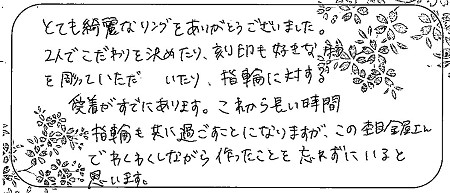 とても綺麗なリングをありがとうございました。
2人でこだわりを決めたり、刻印も好きな
を彫っていただ いたり、指輪に対する
愛着がすでにあります。これから長い時間
指輪も共に過ごすことになりますが、この杢目金屋さん
でわくわくしながら作ったことを忘れずにいると
思います。